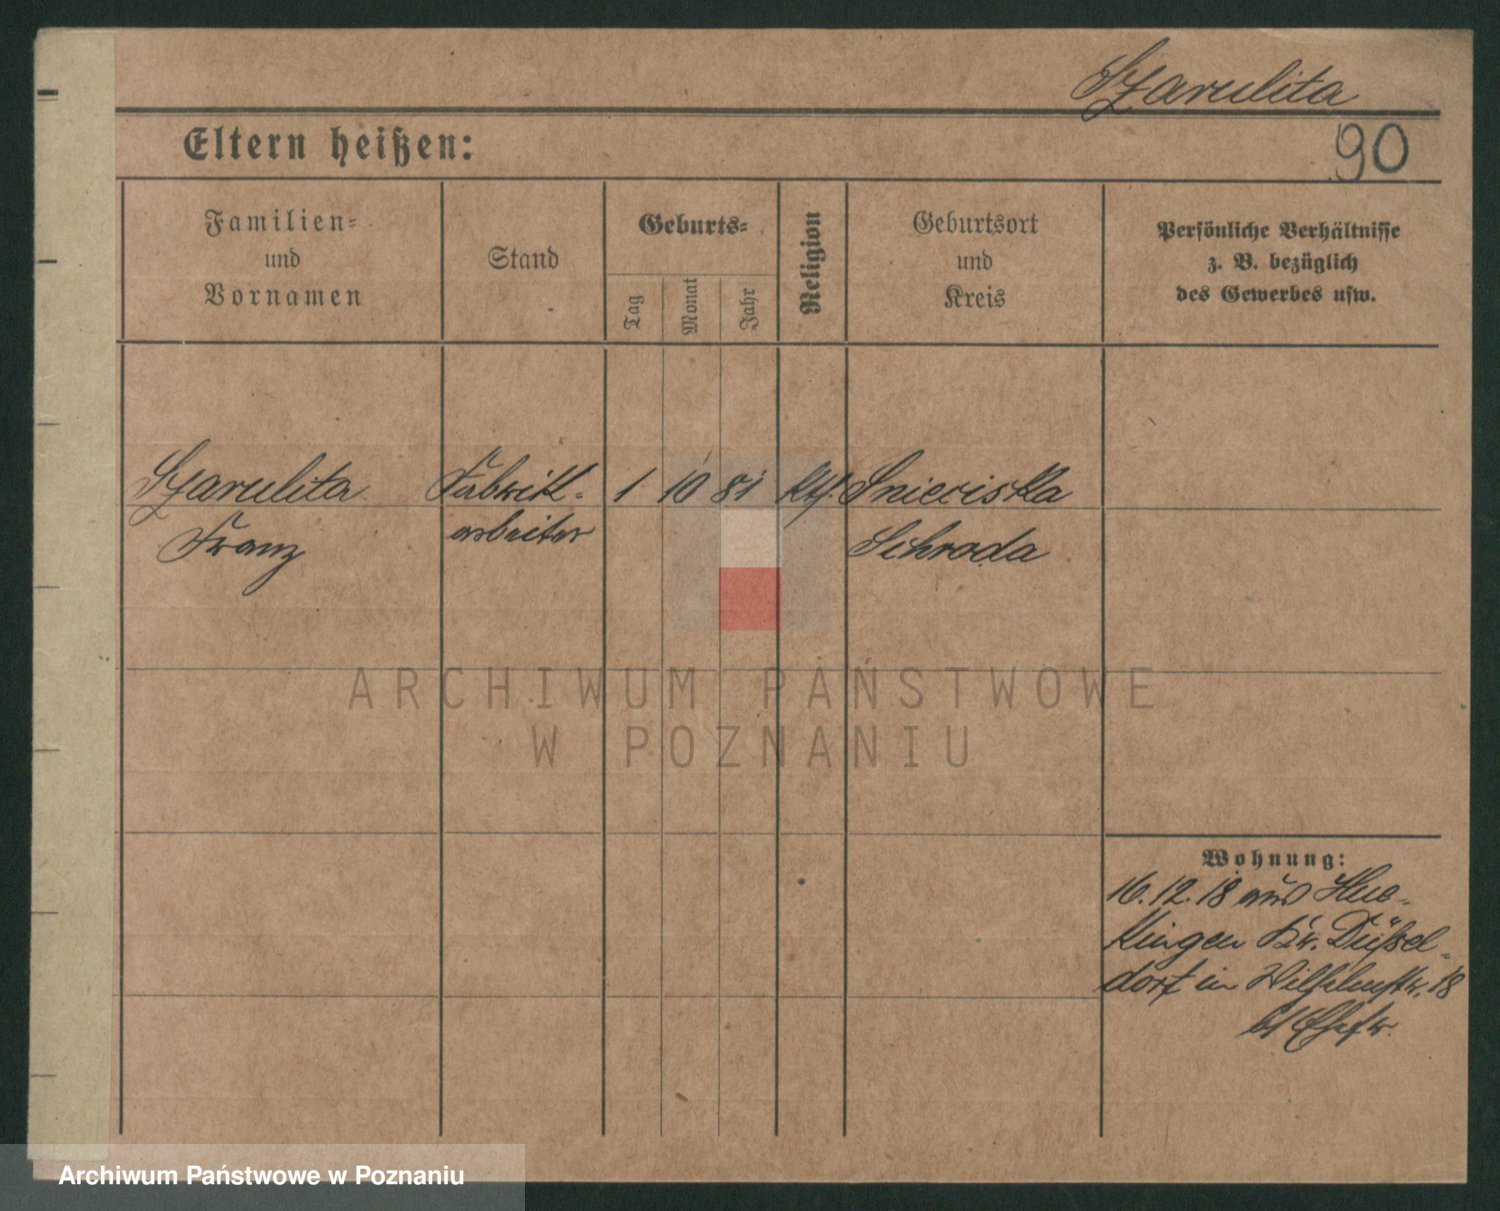 Szarulita
90
Eltern heißen:
Familien-
und
Vornamen
Stand
Geburts-
Tag
Monat
Jahr
Religion
Geburtsort
und
Kreis
Persönliche Verhältnisse
z. B. bezüglich
des Gewerbes usw.
Szarulita Fabrik- 1 10 81 kth. Snieciska
Franz arbeiter Schroda
Wohnung:
16.12.18 aus
Kr. Düssel-
dorf in Wilhelmstr. 18
bei
ARCHIWUM PAŃSTWOWE
W POZNANIU
Archiwum Państwowe w Poznaniu